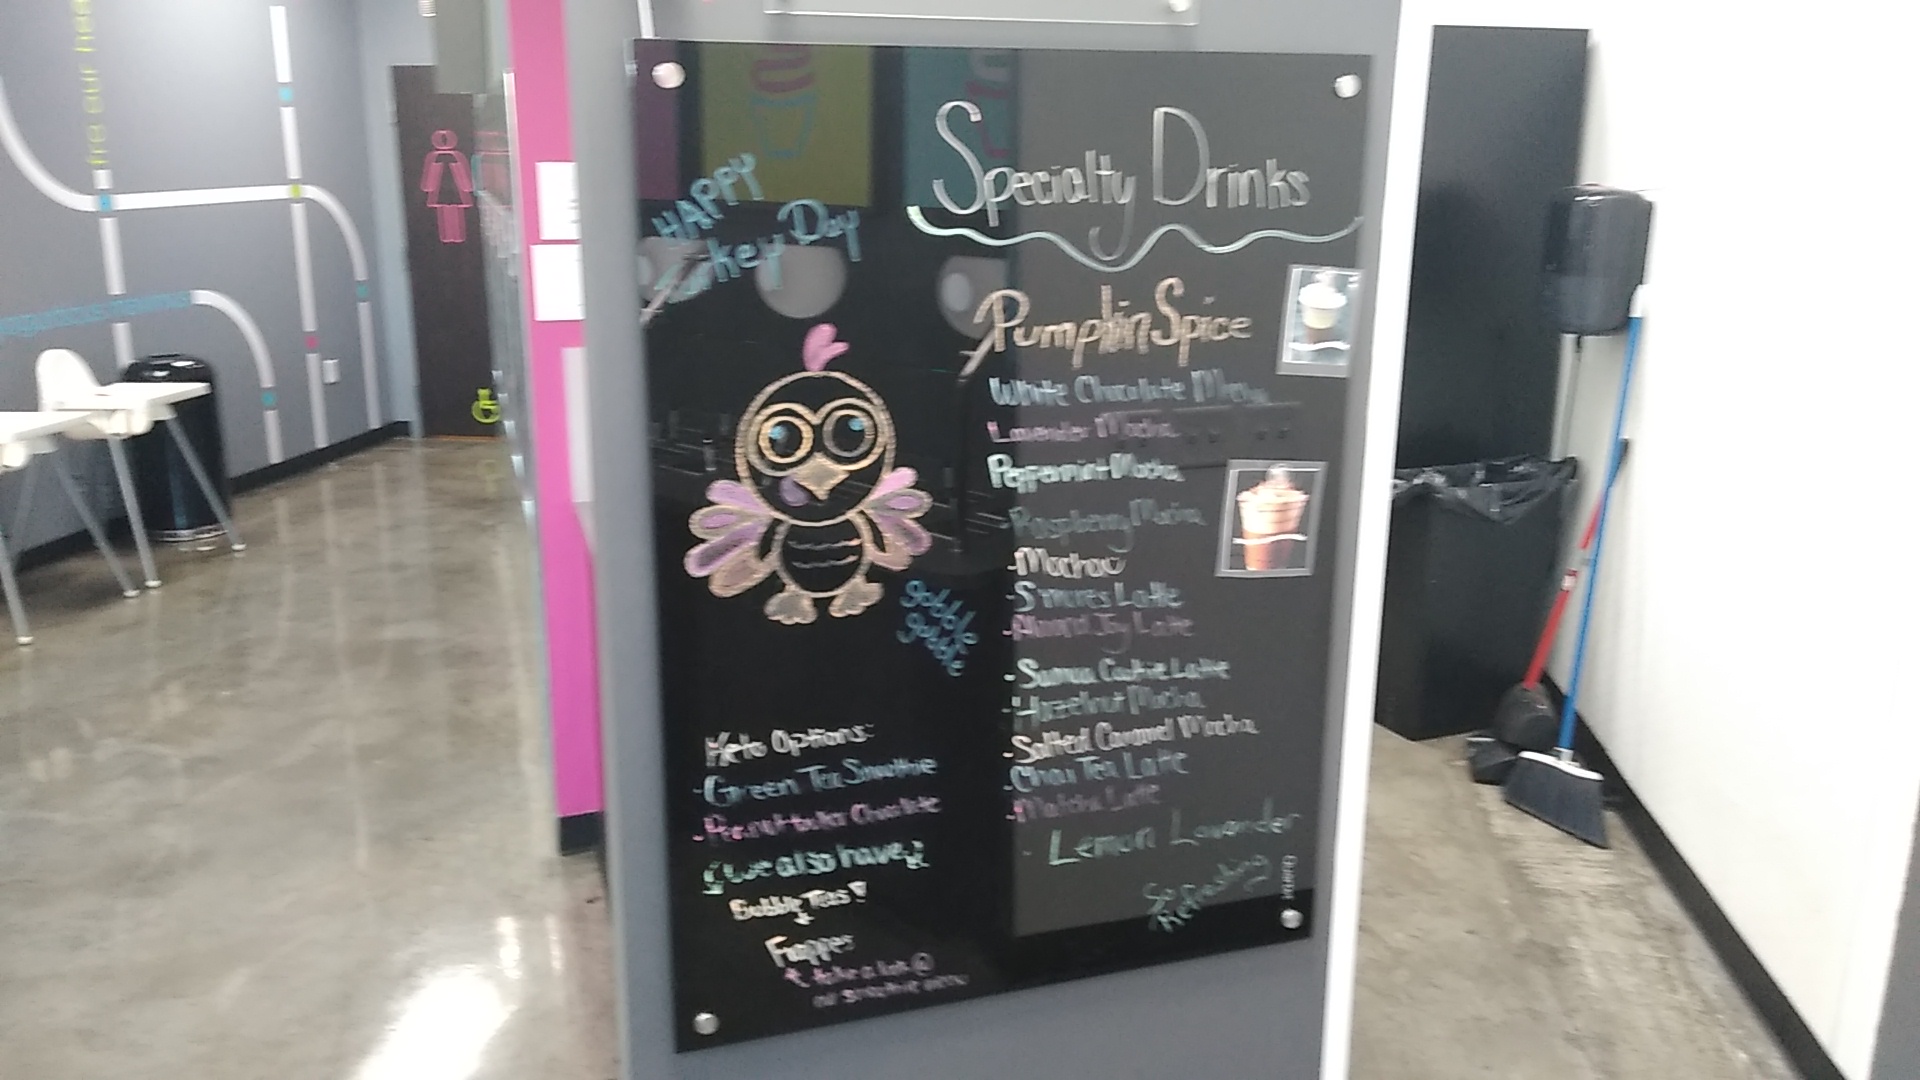 HAPPY
Turkey Day
gobble
gobble
Keto Options:
-Green Tea Smoothie
-Peanut butter Chocolate
we also have
Bubble Teas
Frappes
take a look @
our smoothie menu
Specialty Drinks
Pumpkin Spice
White Chocolate Mocha
Lavender Mocha
Peppermint Mocha
-Raspberry Mocha
-Mocha
-S'mores Latte
-Almond Joy Latte
-Samoa Cookie Latte
-Hazelnut Mocha
-Salted Caramel Mocha
-Chai Tea Latte
-Matcha Latte
- Lemon Lavender
So
Refreshing